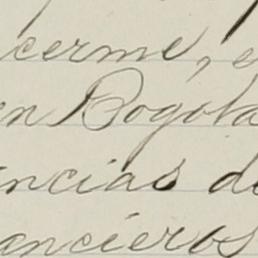 cerme, e
en Bogotá
ncias de
ancieros